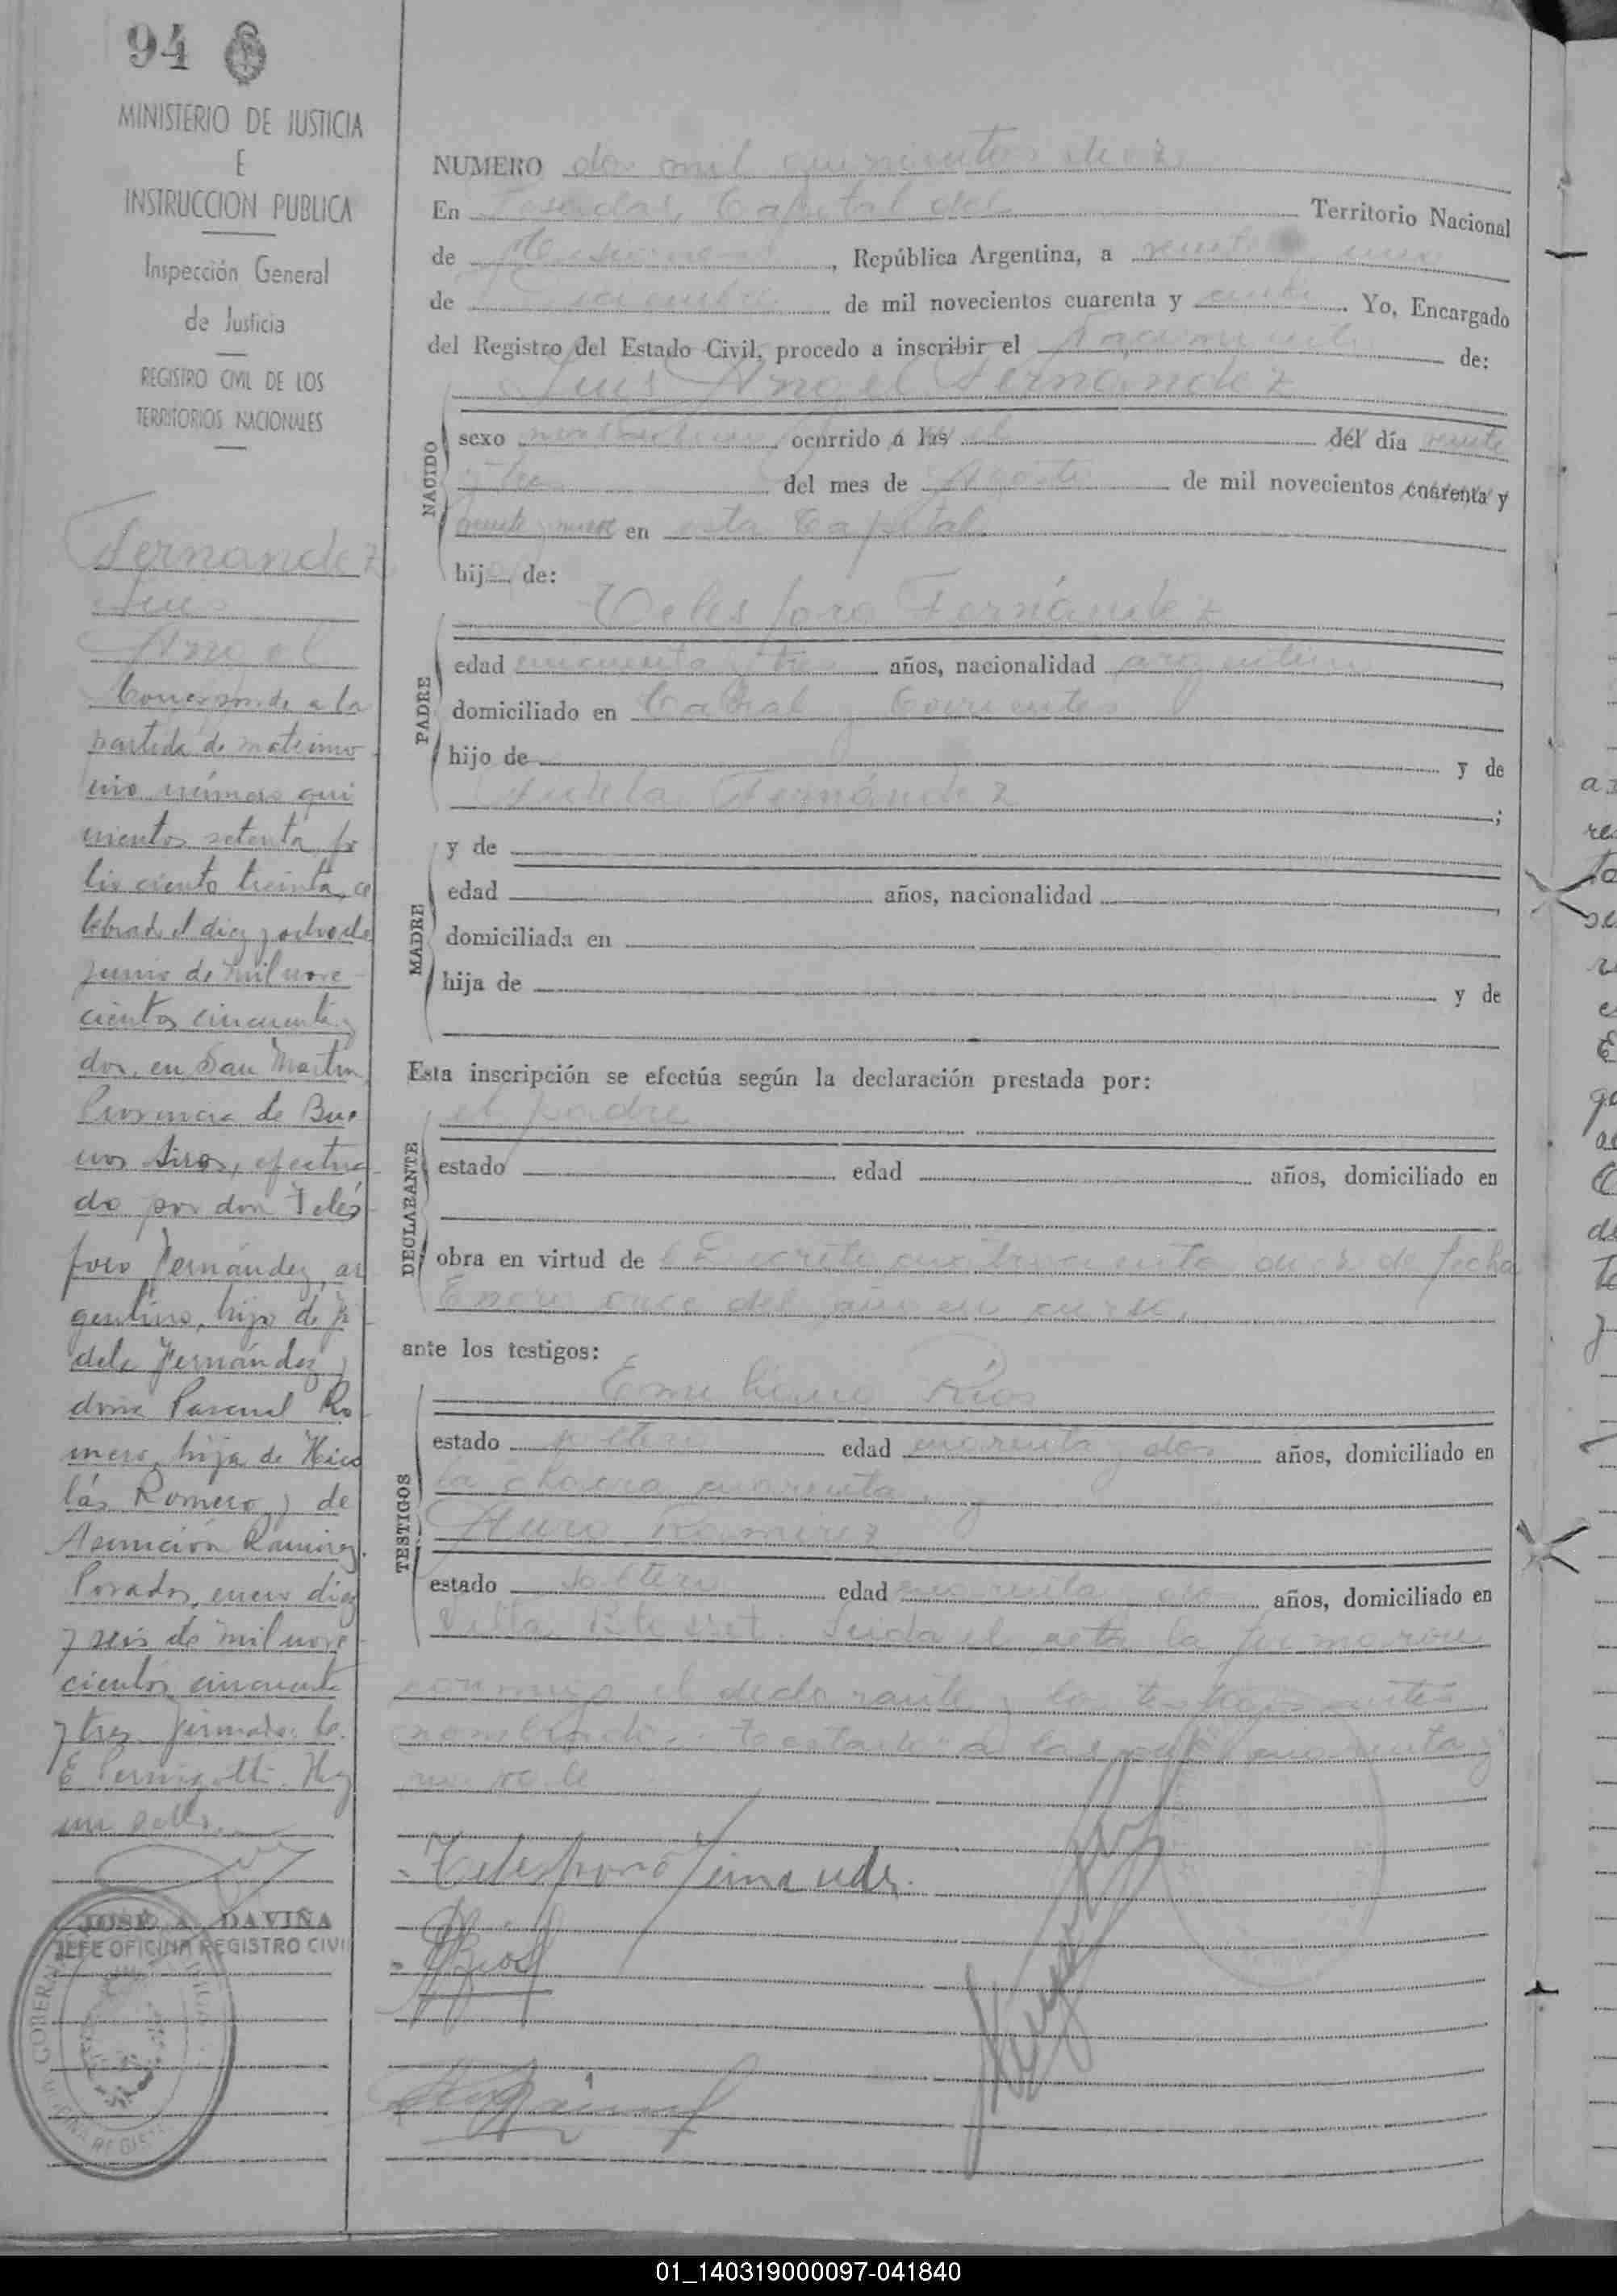 94
MINISTERIO DE JUSTICIA
E
INSTRUCCION PUBLICA
Inspección General
de Justicia
REGISTRO CIVIL DE LOS
TERRITORIOS NACIONALES
Fernandez
Luis
Angel
Corresponde a la
partida de matrimo
nio número qui
nientos setenta fo
lio ciento treinta, ce
lebrado el diez y ocho de
junio de mil nove
cientos cincuenta y
dos, en San Martin
Provincia de Bue
nos Aires, efectua
do por don Telés
foro Fernández, ar
gentino, hijo de Fi
dela Fernández y
doña Pascual Ro
mero, hija de Nico
lás Romero y de
Asunción Ramirez.
Posadas, enero diez
y seis de mil nove
cientos cincuenta
y tres firmado:
E Pernigotti. Hay
un sello.
JOSÉ A. DAVIÑA
JEFE OFICINA REGISTRO CIVI
NUMERO dos mil quinientos diez
En Posadas, Capital del Territorio Nacional
de Misiones, República Argentina, a veinte y uno
de de mil novecientos cuarenta y Yo, Encargado
del Registro del Estado Civil, procedo a inscribir el nacimiento de:
Luis Angel Fernández
NACIDO
sexo masculino ocurrido a las el del día veinte
y tres del mes de Agosto de mil novecientos cuarenta y
veinte y nueve en esta Capital
hijo de:
Telesforo Fernández
PADRE
edad cincuenta y tres años, nacionalidad argentino
domiciliado en Cabral y Corrientes
hijo de y de
Fidela Fernández ;
MADRE
y de
edad años, nacionalidad
domiciliada en
hija de y de
Esta inscripción se efectúa según la declaración prestada por:
el padre
DECLARANTE
estado edad años, domiciliado en
obra en virtud de Decreto cuatrocientos diez de fecha
Enero once del año en curso.
ante los testigos:
Emiliano Ríos
TESTIGOS
estado soltero edad cuarenta y dos años, domiciliado en
la chacra cuarenta y
Ramirez
estado soltero edad cuarenta años, domiciliado en
Villa Blosset. Leida el acta la firmaron
conmigo el declarante y los testigos antes
nombrados. Testado: a las
no vale
Telesforo Fernandez
Rios
01_140319000097-041840